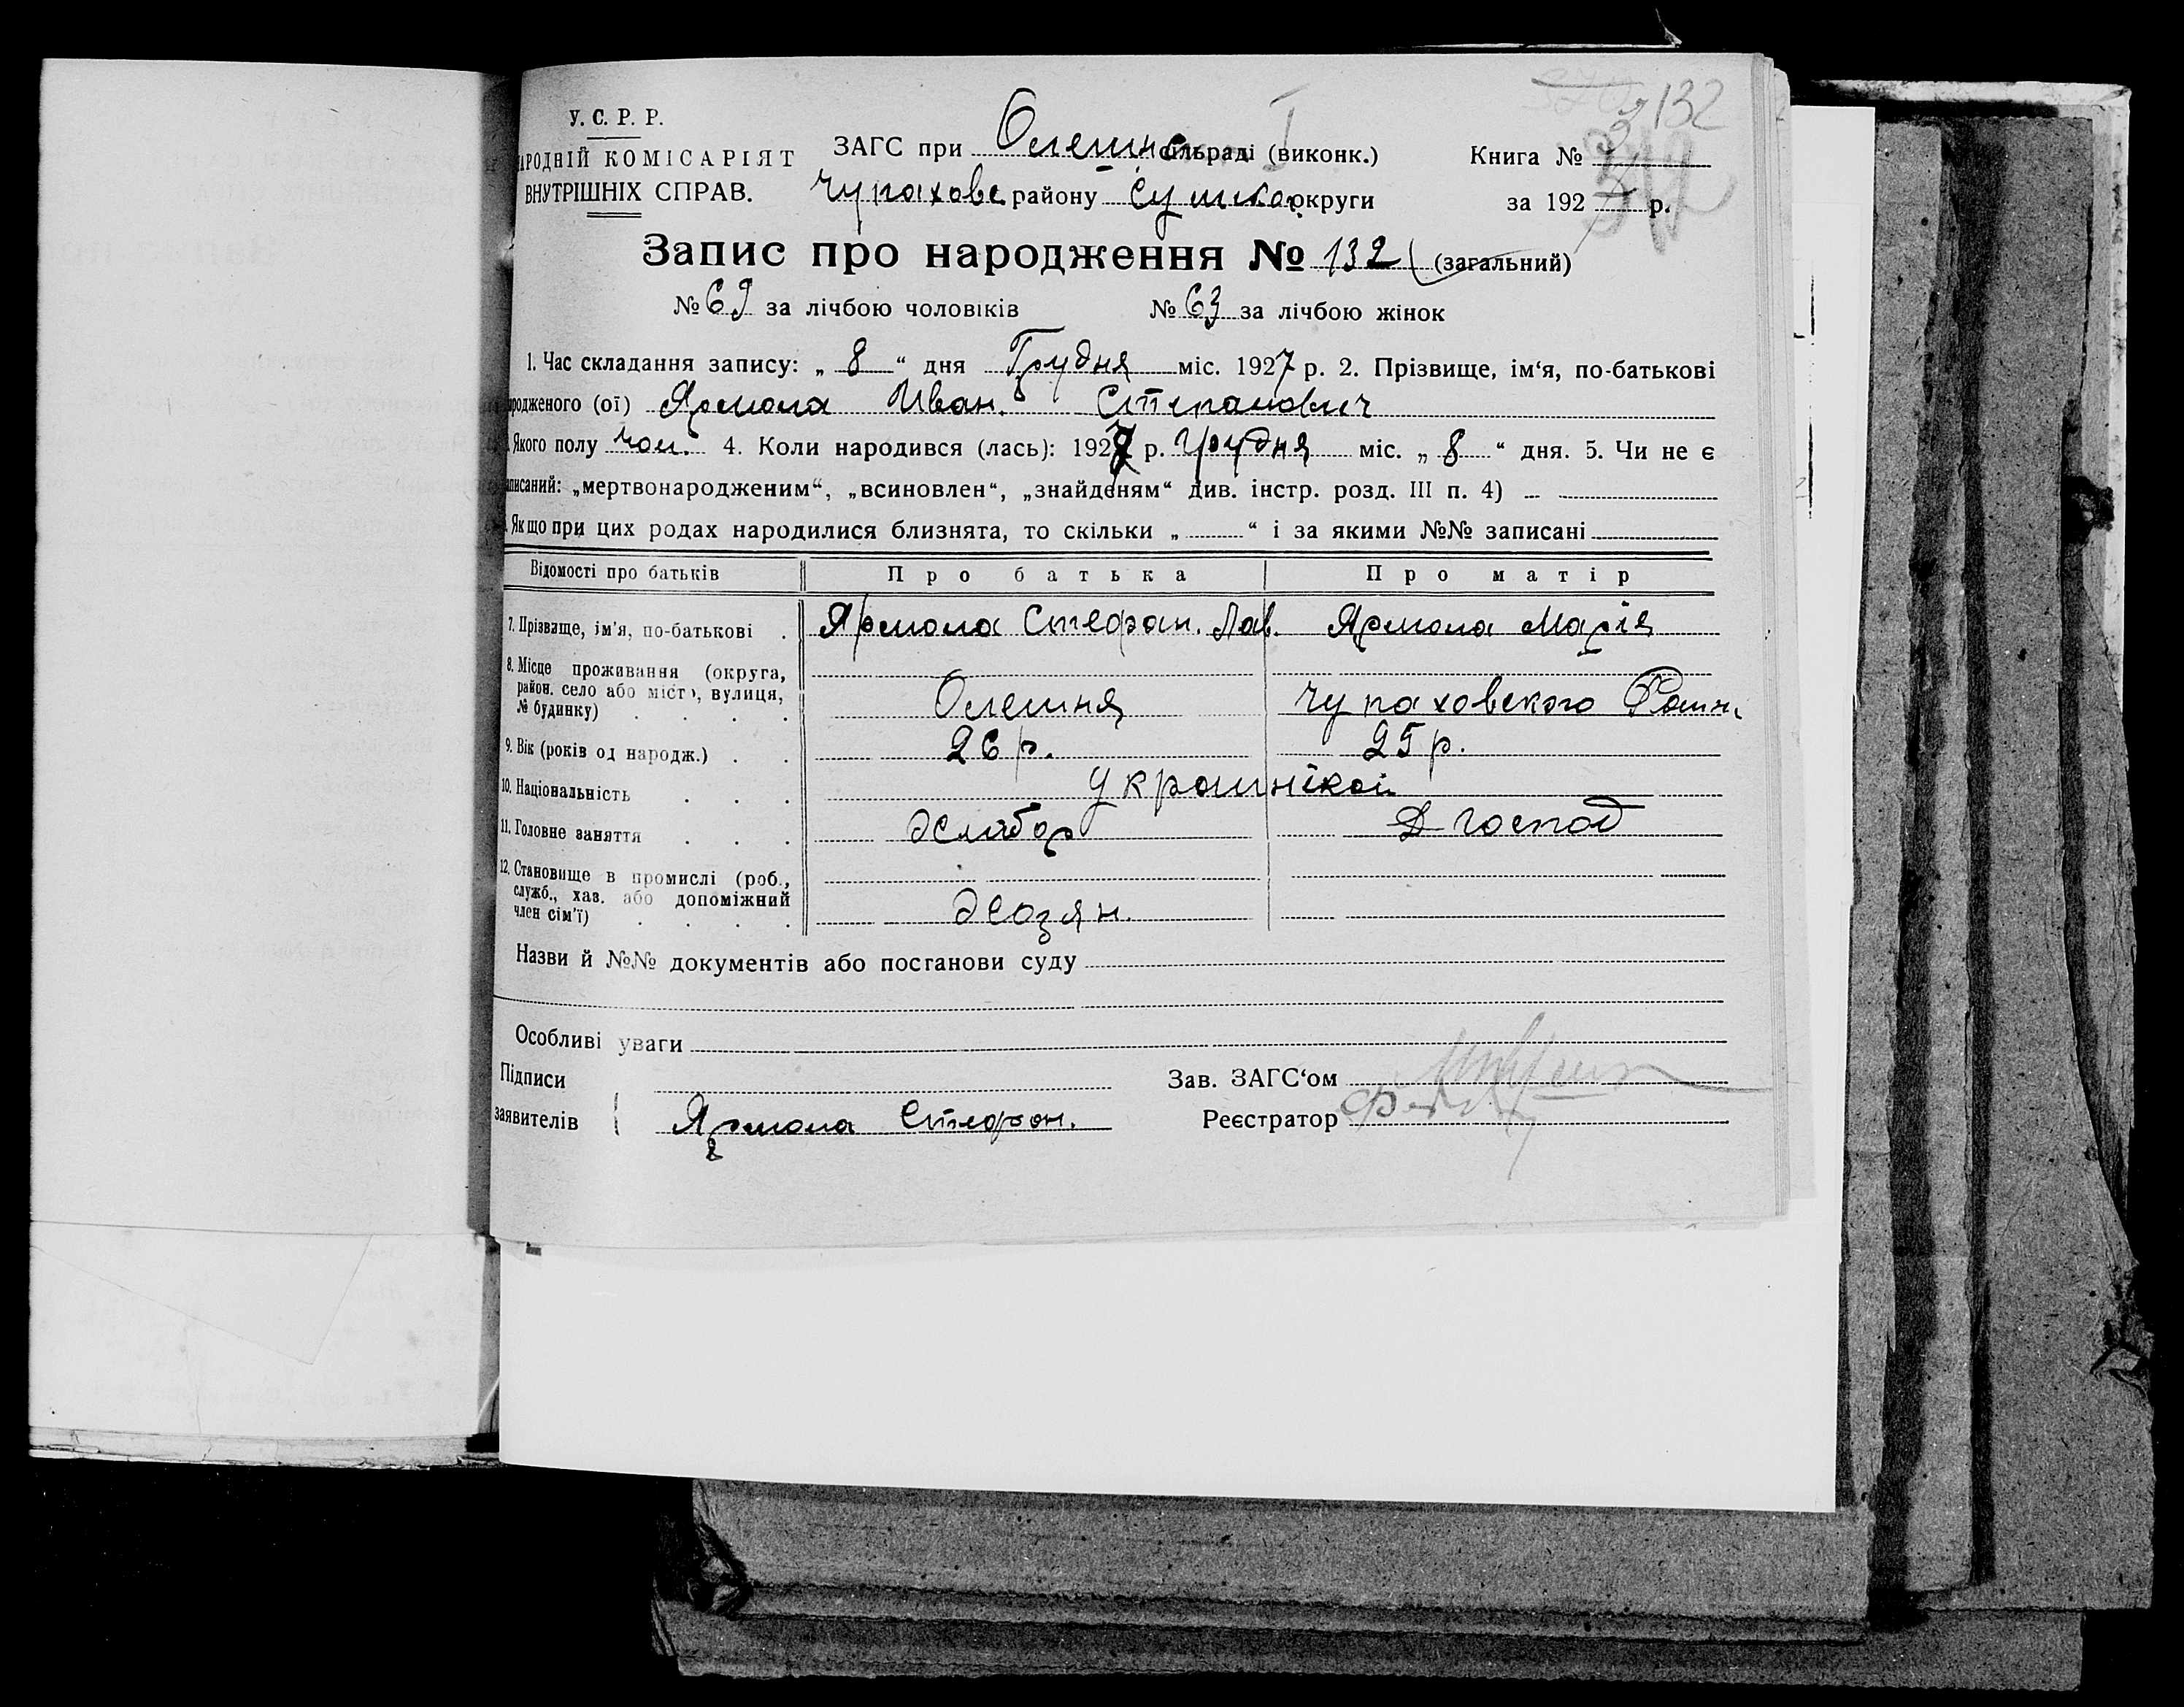 132
У. С. Р. Р.
АРОДНІЙ КОМІСАРІЯТ
ВНУТРІШНІХ СПРАВ.
ЗАГС при Олешня сільраді (виконк.)
Книга №
Чупахове району Сумско округи
за 192 р.
Запис про народження № 132 (загальний)
№ 69 за лічбою чоловіків № 63 за лічбою жінок
1. Час складання запису: „ 8 “ дня Грудня міс. 1927 р. 2. Прізвище, ім‘я, по-батькові
родженого (ої) Ярмола Иван. Степанович
Якого полу чол. 4. Коли народився (лась): 1927 р. Грудня міс. „ 8 “ дня. 5. Чи не є
аписаний: „мертвонародженим“, „всиновлен“, „знайденям“ див. інстр. розд. III п. 4)
Якщо при цих родах народилися близнята, то скільки „ “ і за якими №№ записані
Відомості про батьків Про батька Про матір
7. Прізвище, ім'я, по-батькові Ярмола Стефан. Лав. Ярмола Марія
8. Місце проживання (округа,
район. село або місто, вулиця,
№ будинку) Олешня Чупаховского Раин
9. Вік (років од народж.) 26 р. 25 р.
10. Національність
11. Головне заняття Хлибор Д господ
12. Становище в промислі (роб.,
служб., хаз. або допоміжний
член сім'ї) Хозян.
Назви й №№ документів або постанови суду
Особливі уваги
Підписи
заявителів Ярмола Стефан.
Зав. ЗАГС‘ом
Реєстратор